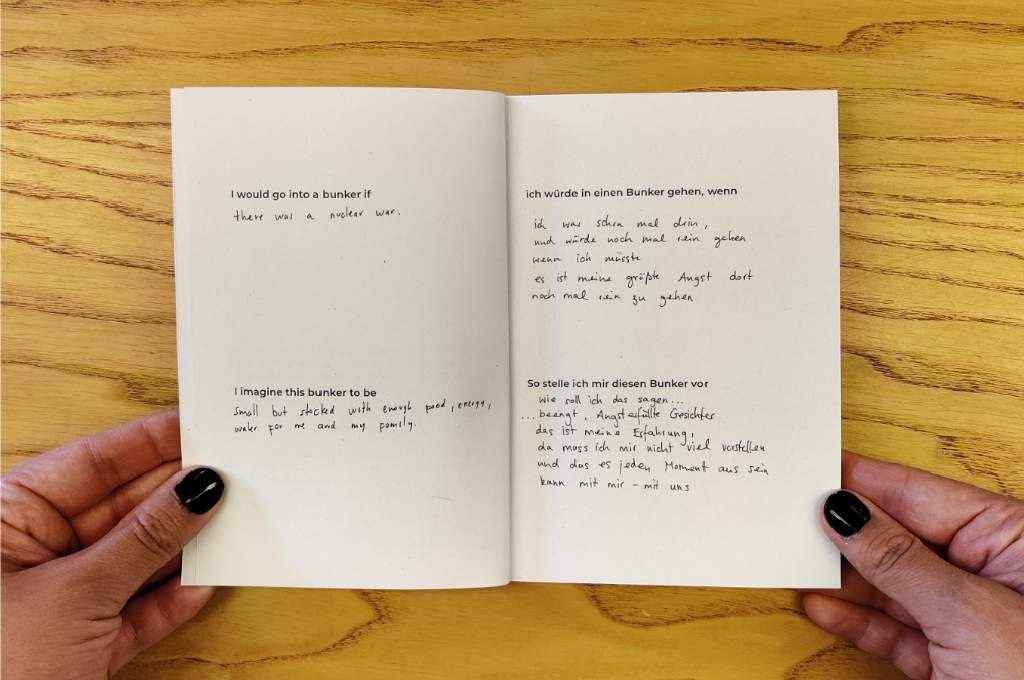 I would go into a bunker if
there was a nuclear war.
I imagine this bunker to be
Small but stocked with enough food, energy,
water for me and my family.
ich würde in einen Bunker gehen, wenn
ich war schon mal drin,
und würde noch mal rein gehen
wenn ich müsste
es ist meine größte Angst dort
noch mal rein zu gehen
So stelle ich mir diesen Bunker vor
wie soll ich das sagen...
... beengt, Angsterfüllte Gesichter
das ist meine Erfahrung,
da muss ich mir nicht viel vorstellen
und das es jeden Moment aus sein
kann mit mir – mit uns